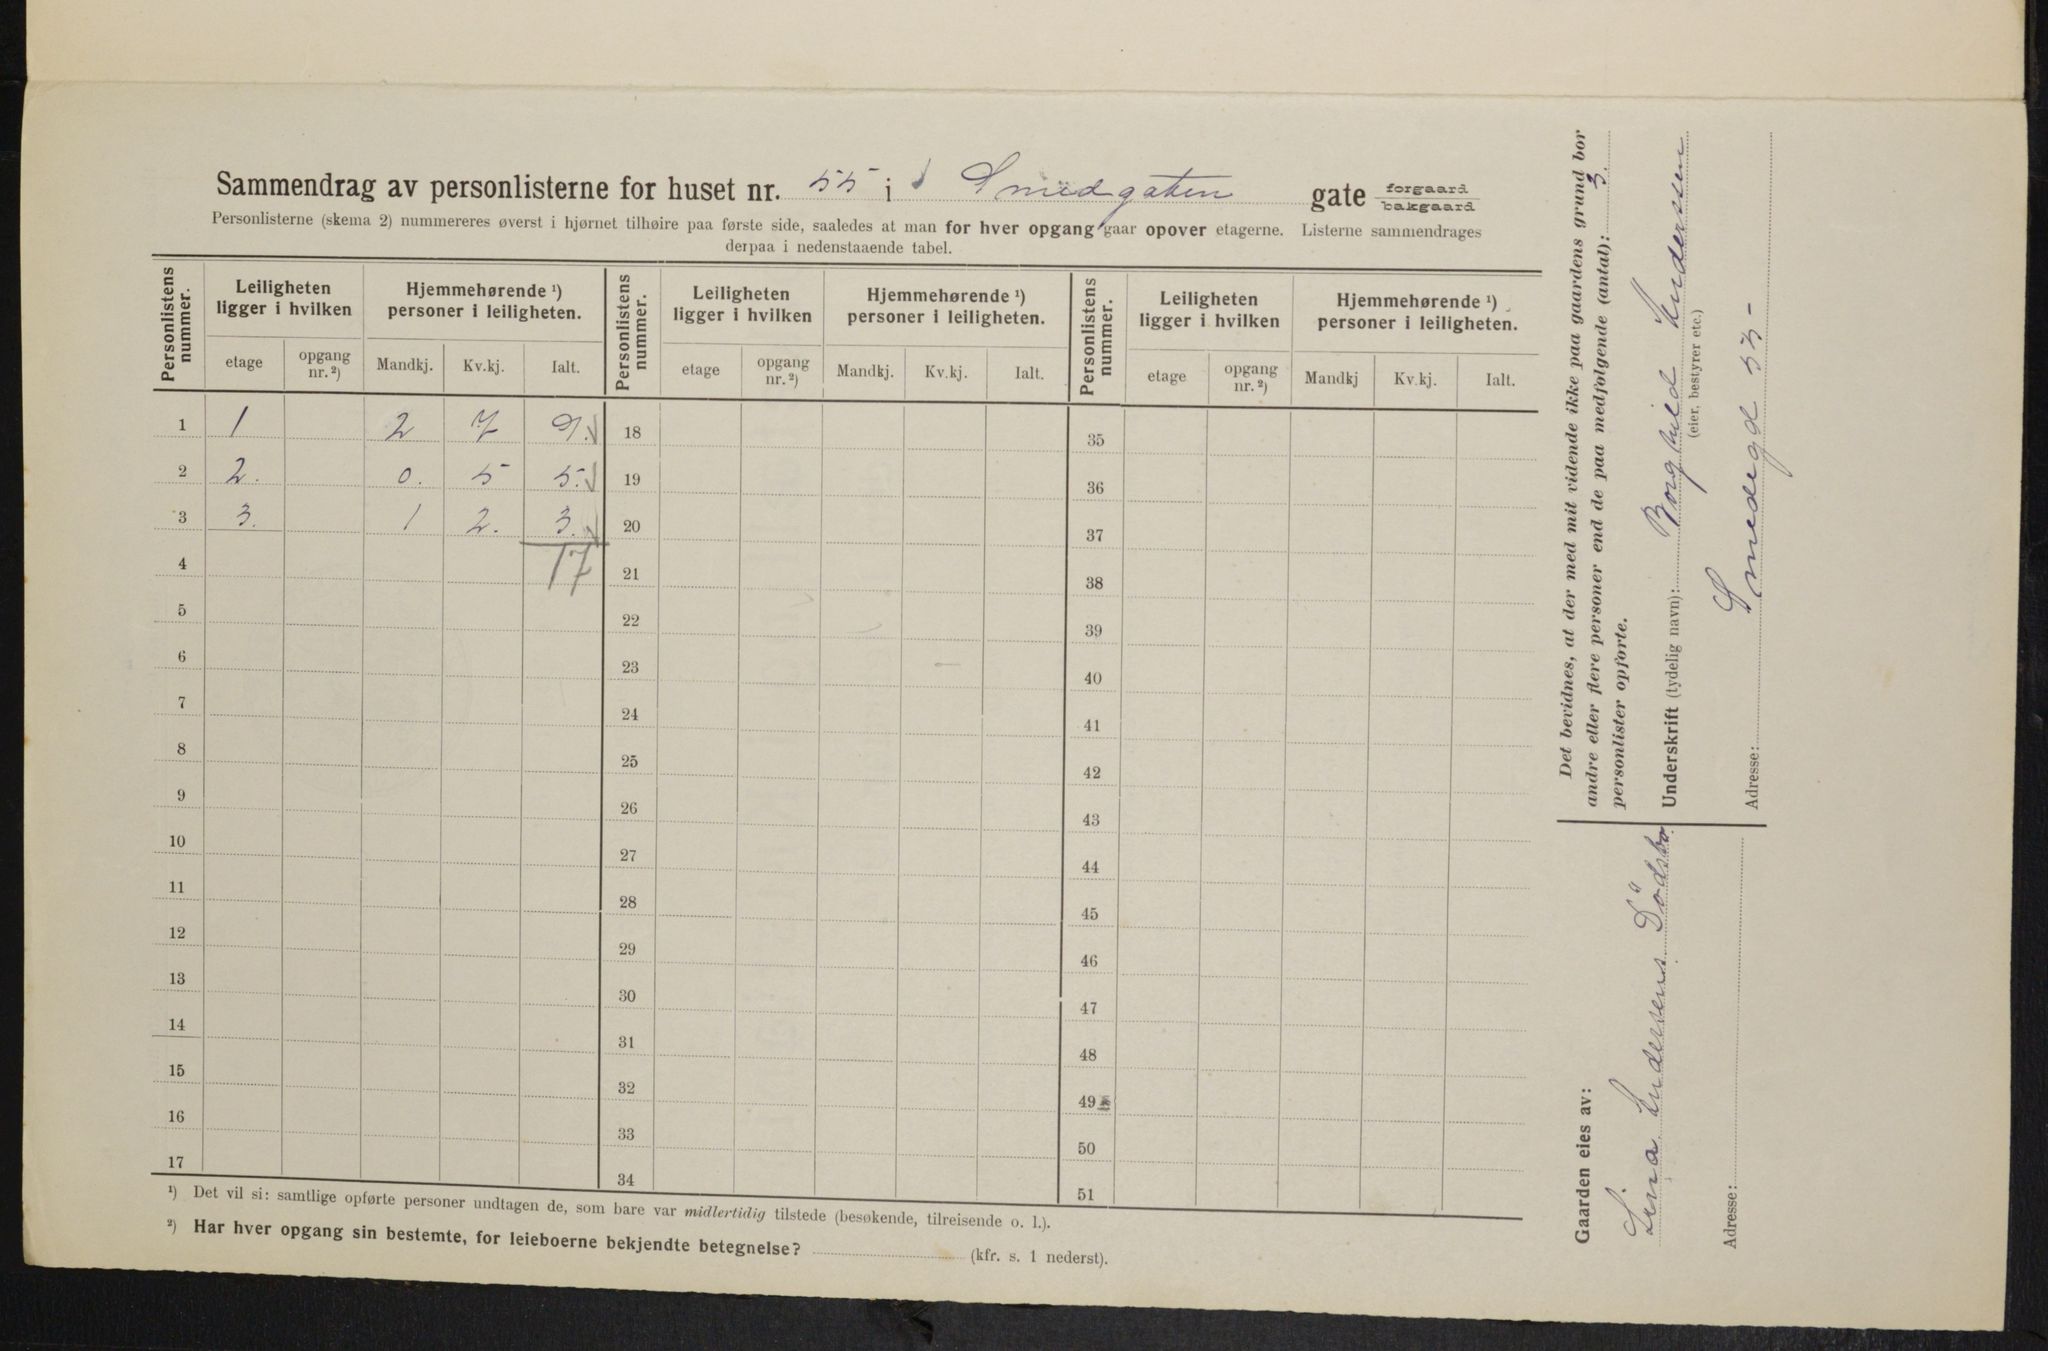 Sammendrag av personlisterne for huset nr. 55 i Smedgaten gate forgaard bakgaard
Personlisterne (skema 2) nummereres øverst i hjørnet tilhøire paa første side, saaledes at man for hver opgang gaar opover etagerne. Listerne sammendrages
derpaa i nedenstaaende tabel.
Personlistens nummer. Leiligheten ligger i hvilken Hjemmehørende ¹) personer i leiligheten. Personlistens nummer. Leiligheten ligger i hvilken Hjemmehørende ¹) personer i leiligheten. Personlistens nummer. Leiligheten ligger i hvilken Hjemmehørende ¹) personer i leiligheten.
etage opgang nr. ²) Mandkj. Kv.kj. Ialt. etage opgang nr. ²) Mandkj. Kv.kj. Ialt. etage opgang nr. ²) Mandkj Kv.kj. Ialt.
1 1 2 7 9. 18 35
2 2. 0. 5 5. 19 36
3 3. 1 2. 3. 20 37
4 17 21 38
5 22 39
6 23 40
7 24 41
8 25 42
9 26 43
10 27 44
11 28 45
12 29 46
13 30 47
14 31 48
15 32 49
16 33 50
17 34 51
¹) Det vil si: samtlige opførte personer undtagen de, som bare var midlertidig tilstede (besøkende, tilreisende o. l.).
²) Har hver opgang sin bestemte, for leieboerne bekjendte betegnelse? (kfr. s. 1 nederst).
Det bevidnes, at der med mit vidende ikke paa gaardens grund bor
andre eller flere personer end de paa medfølgende (antal): 3.
personlister opførte.
Underskrift (tydelig navn): Borghild Andersen
(eier, bestyrer etc.)
Adresse: Smedegd 55-
Gaarden eies av:
Lina Andersens Dödsbo.
Adresse: